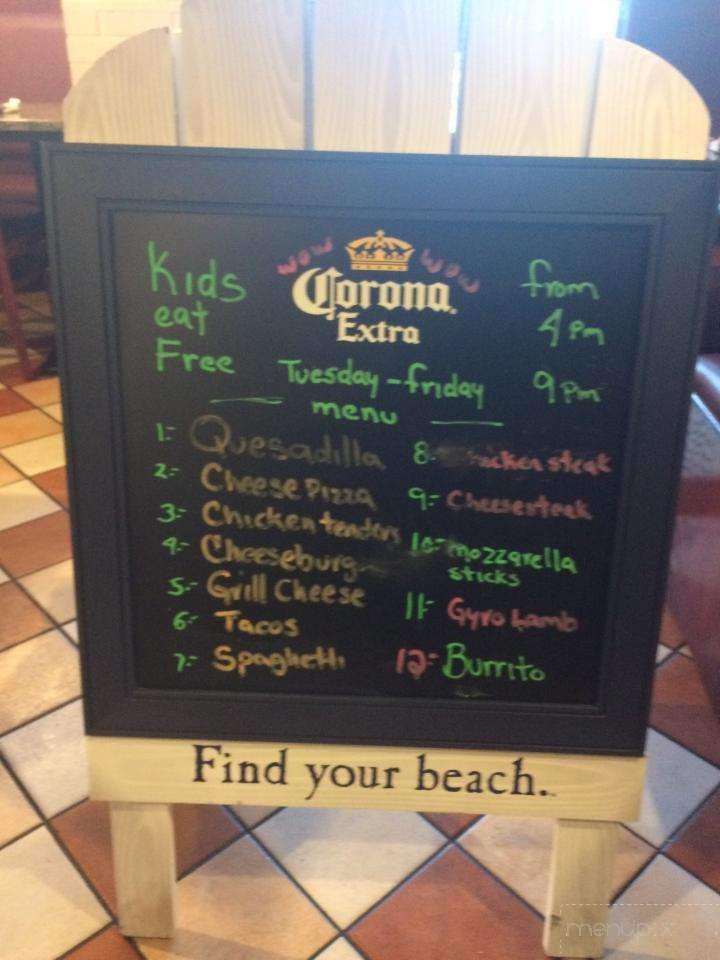 Kids
eat
Free
wow
wow
Corona
Extra
from
4 pm
9 pm
Tuesday - friday
menu
1:- Quesadilla
2:- Cheese Pizza
3:- Chicken tenders
4:- Cheeseburg
5:- Grill Cheese
6:- Tacos
7:- Spaghetti
8:- chicken steak
9:- Cheesesteak
10:- mozzarella
sticks
11- Gyro Lamb
12:- Burrito
Find your beach.
menupix